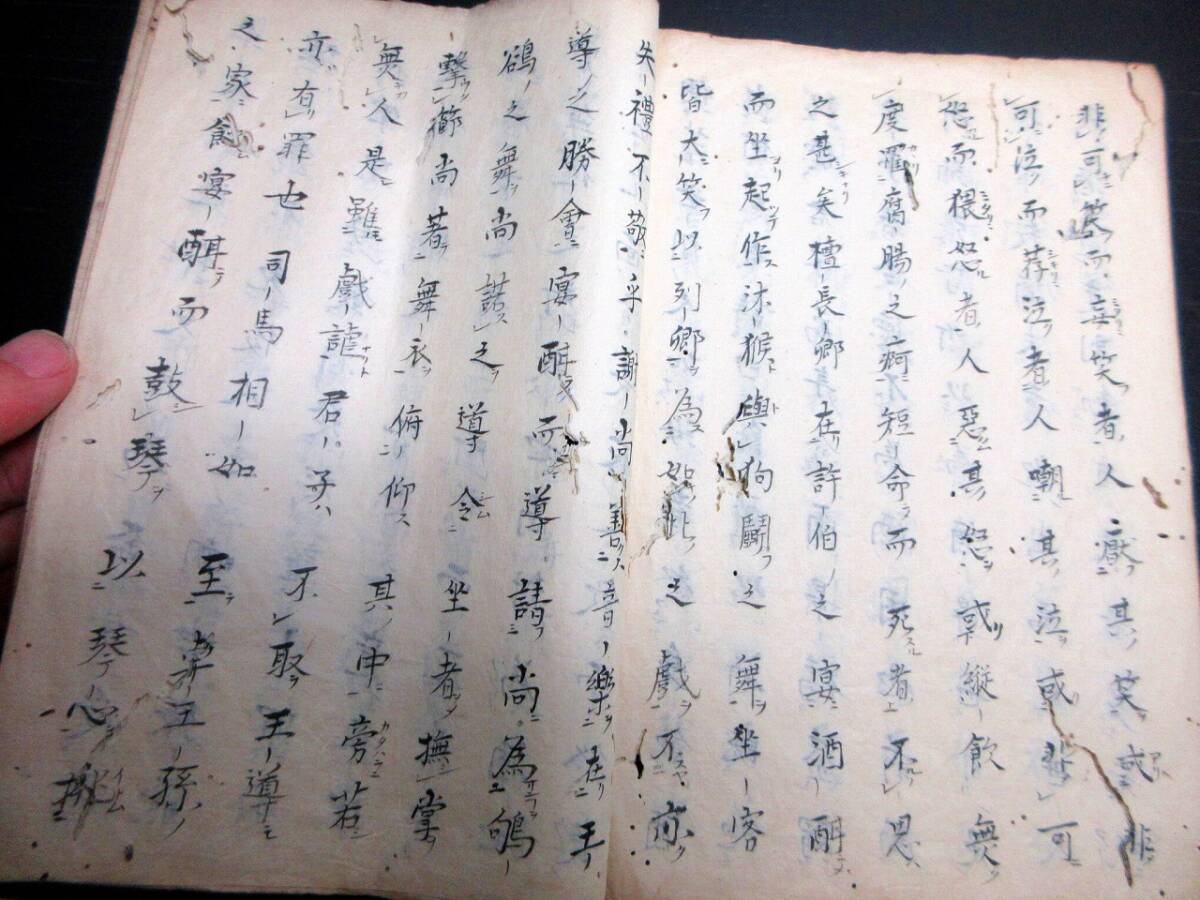 非可笑而妄笑者人厭其笑或非
可泣而荐泣者人嘲其泣或非可
怒而猥怒者人惡其怒或縦飲無
度罹腐腸之痾短命而死者不思
之甚矣檀長卿在許伯之宴酒酣
而坐起作沐猴與狗鬪之舞坐客
皆大笑以列卿為如此之戯不亦
失禮不敬乎謝尚善音樂在王
導之勝會宴酣而導請尚為鴝
鵒之舞尚諾之導令坐者撫掌
擊節尚著舞衣俯仰其中旁若
無人是雖戯謔君子不取王導
亦有罪也司馬相如至卓王孫
之家飲宴酣而鼓琴以琴心挑